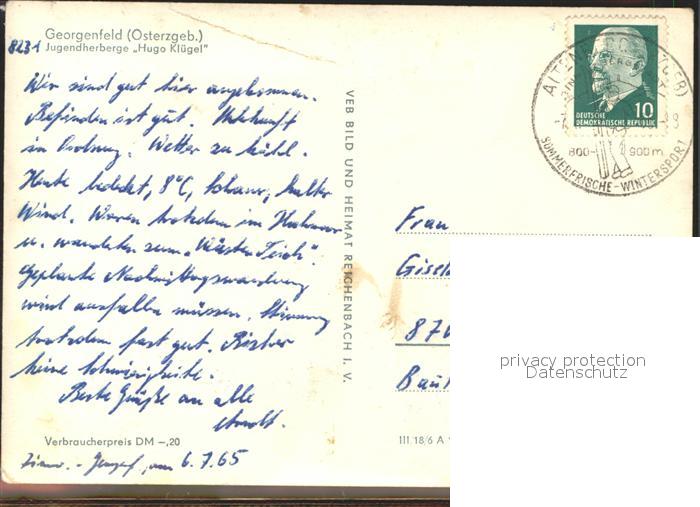 Georgenfeld (Osterzgeb.)
8231 Jugendherberge „Hugo Klügel"
Wir sind gut hier angekommen.
Befinden ist gut. Unterkunft
in Ordnung. Wetter zu kühl.
Heute bedeckt, 8°C, kalter
Wind. Waren trotzdem im
u. wanderten zum „ Teich".
Geplante Nachmittagswanderung
wird ausfallen müssen. Stimmung
trotzdem fast gut. Bisher
keine Schwierigkeite.
Beste Grüße an alle
Verbraucherpreis DM –,20
6.7.65
VEB BILD UND HEIMAT REICHENBACH I. V.
III 18/6 A
DEUTSCHE
DEMOKRATISCHE REPUBLIK
10
800- 900 m
SOMMERFRISCHE-WINTERSPORT
Frau
Gisel
Baut
privacy protection
Datenschutz